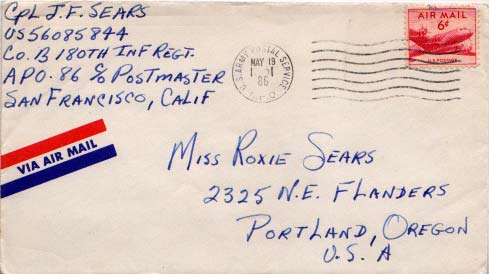 Cpl J. F. Sears
US56085844
Co. B 180th Inf Regt.
APO. 86 c/o Postmaster
San Francisco, Calif
U.S. ARMY POSTAL SERVICE
MAY 19
86
A.P.O.
AIR MAIL
6¢
U.S. POSTAGE
VIA AIR MAIL
Miss Roxie Sears
2325 N.E. Flanders
Portland, Oregon
U.S.A